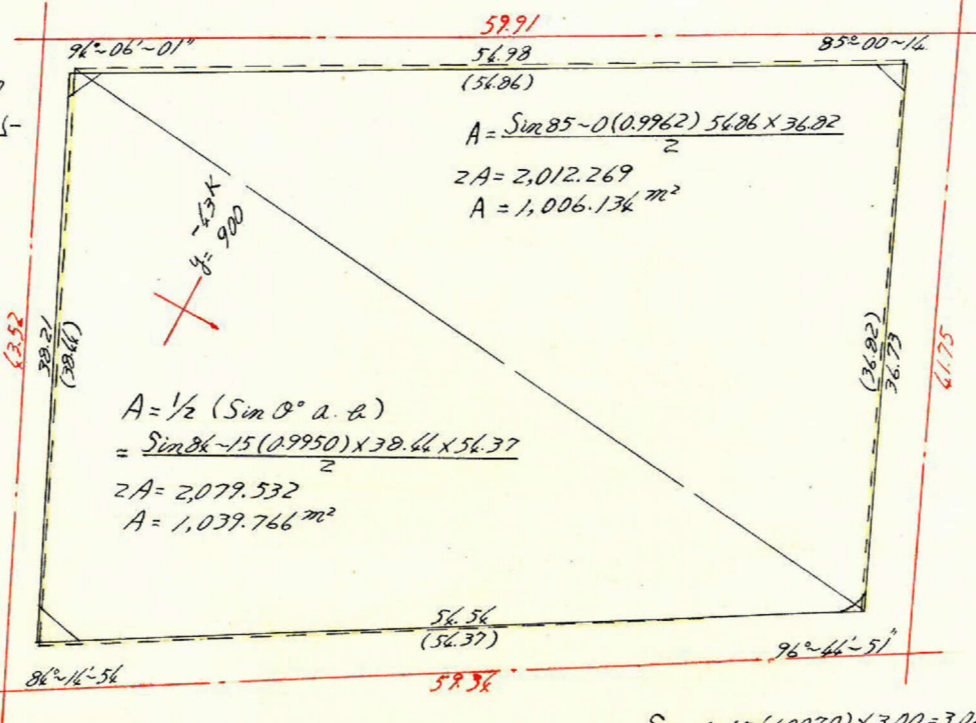 59.91
94°~06'~01"
54.98
85°~00~14
(54.86)
A = Sin85~0(0.9962) 54.86 × 36.82
2
2A = 2,012.269
A = 1,006.134 m²
-43K
y= 900
43.52
38.21
(38.44)
(36.82)
36.73
41.75
A = 1/2 (Sin θ° a. b)
= Sin84~15(0.9950)×38.44×54.37
2
2A = 2,079.532
A = 1,039.766 m²
54.54
(54.37)
84°~14'~54
96°~44'~51"
59.34